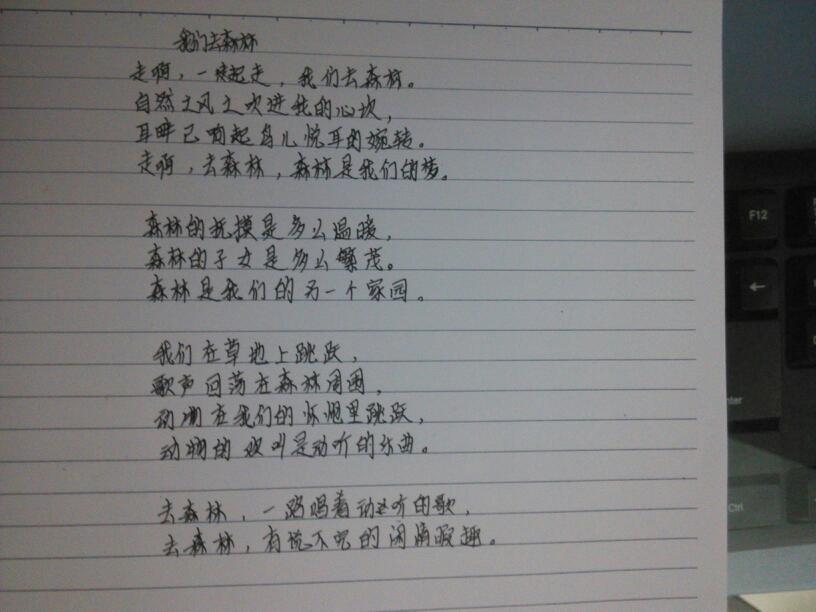 我们去森林
走啊，一起走，我们去森林。
自然之风之吹进我的心坎，
耳畔已响起鸟儿悦耳的婉转。
走啊，去森林，森林是我们的梦。
森林的抚摸是多么温暖，
森林的子女是多么繁茂。
森林是我们的另一个家园。
我们在草地上跳跃，
歌声回荡在森林周围，
动物在我们的怀抱里跳跃，
动物的欢叫是动听的乐曲。
去森林，一路唱着动听的歌，
去森林，有说不完的闲情暇趣。
F12
←
nter
Ctrl